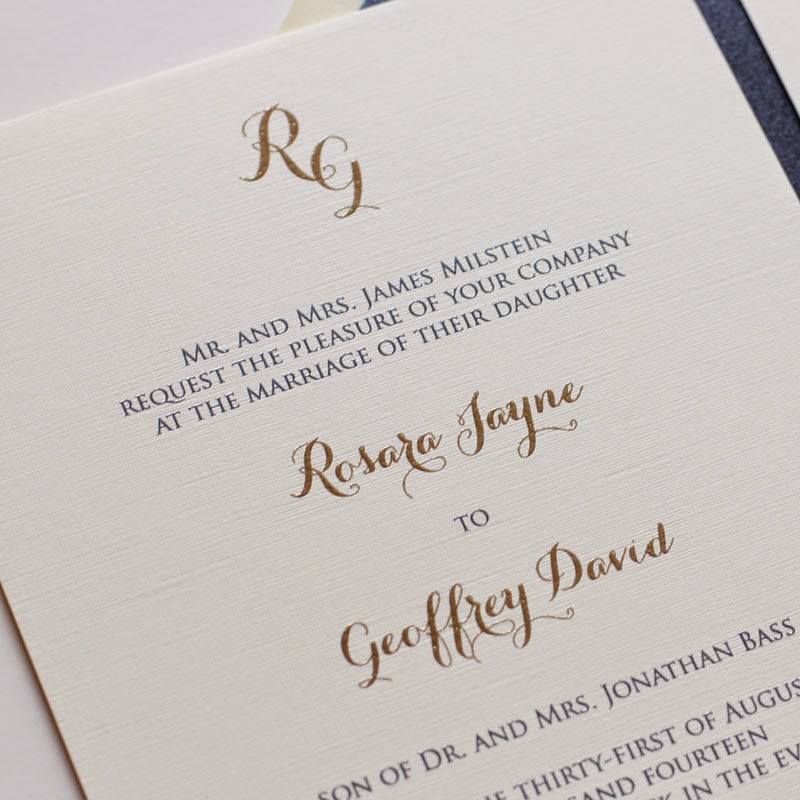 RG
Mr. and Mrs. James Milstein
request the pleasure of your company
at the marriage of their daughter
Rosara Jayne
to
Geoffrey David
son of Dr. and Mrs. Jonathan Bass
thirty-first of
fourteen
in the